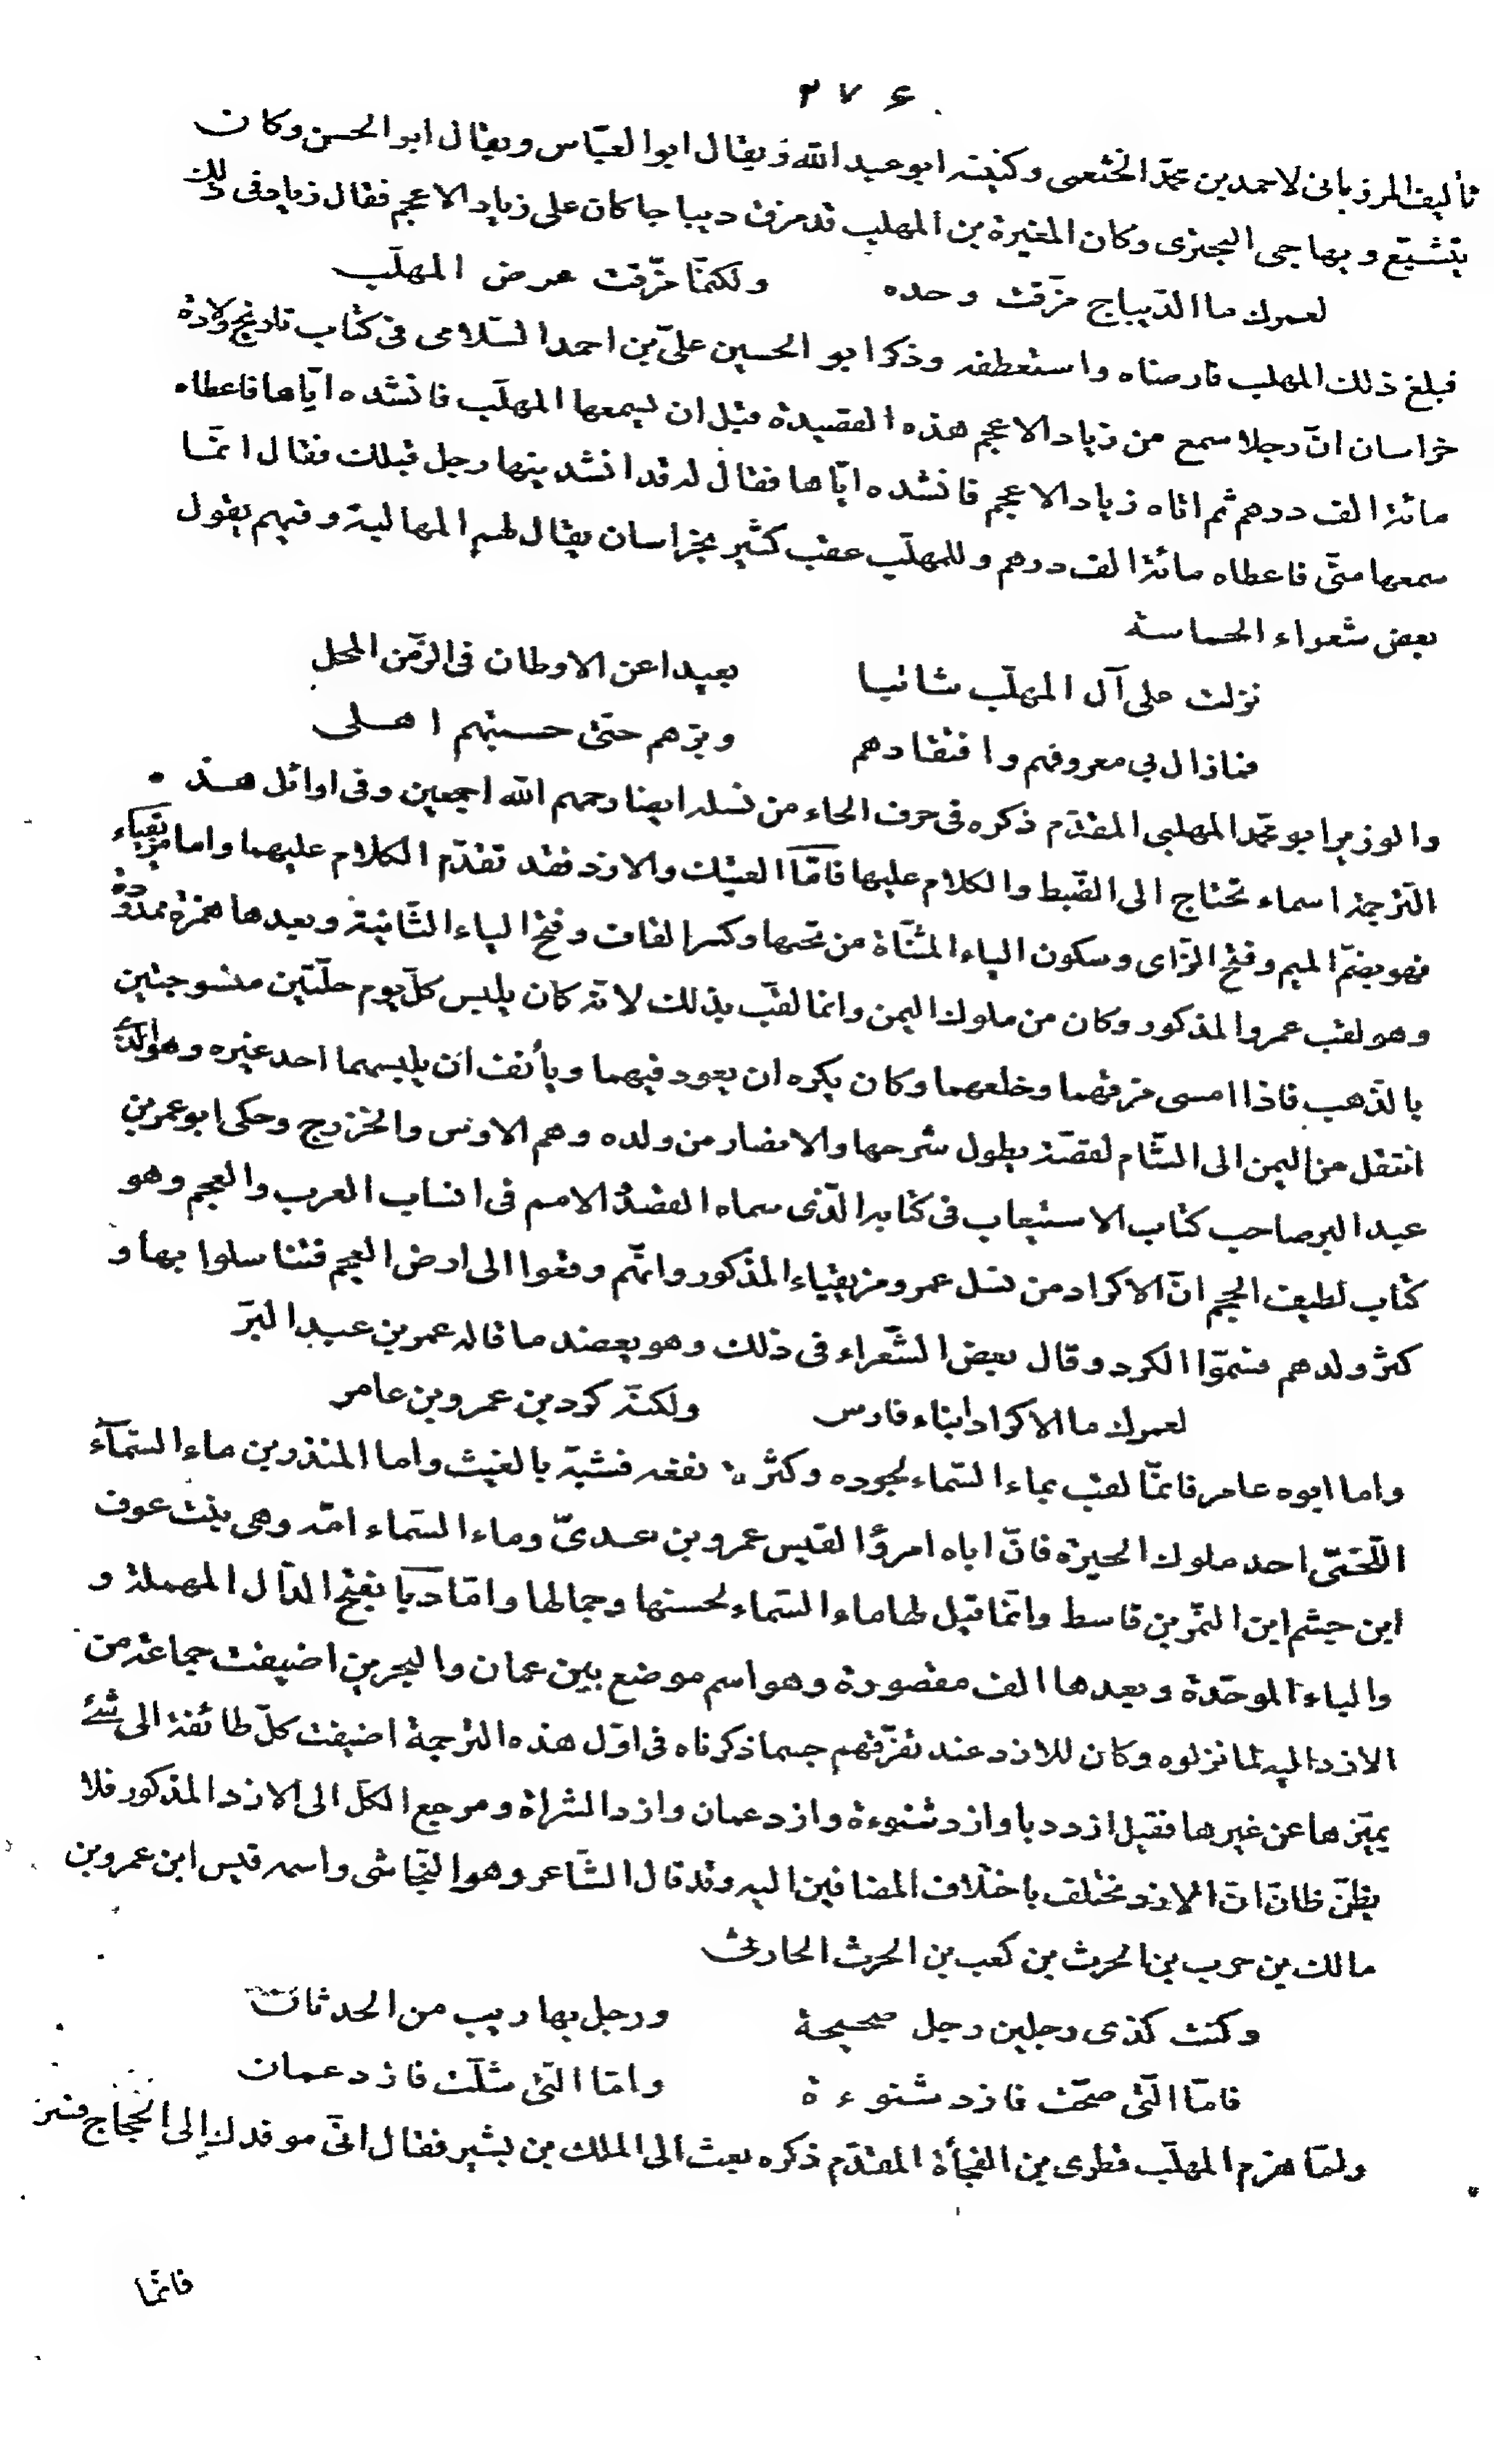 ۲۷۶
تأليف المرزبانى لاحمد بن محمّد الخثعمى وكنيته ابو عبد الله ويقال ابو العبّاس ويقال ابو الحسن وكان
يتشيّع ويهاجى البحترى وكان المغيرة بن المهلب قد مزق ديباجا كان على زياد الاعجم فقال زياد فى ذلك
لعمرك ما الدّيباج مزّقت وحده ولكنّما مزّقت عرض المهلّب
فبلغ ذلك المهلب فارضاه واستعطفه وذكر ابو الحسين علىّ بن احمد السّلامى فى كتاب تاريخ ولاة
خراسان انّ رجلا سمع من زياد الاعجم هذه القصيدة قبل ان يسمعها المهلّب فانشده ايّاها فاعطاه
مائة الف درهم ثم اتاه زياد الاعجم فانشده ايّاها فقال له قد انشدينها رجل قبلك فقال انّما
سمعها منّى فاعطاه مائة الف درهم وللمهلّب عقب كثير بخراسان يقال لهم المهالبة وفيهم يقول
بعض شعراء الحماسة
نزلت على آل المهلّب شاتيا بعيدا عن الاوطان فى الزّمن المحل
فما زال بي معروفهم وافتقادهم وبرّهم حتّى حسبتهم اهلى
والوزير ابو محمّد المهلبى المقدّم ذكره فى حرف الحاء من نسله ايضا رحمهم الله اجمعين وفى اوائل هذه
التّرجمة اسماء تحتاج الى الضّبط والكلام عليها فامّا العتيك والازد فقد تقدّم الكلام عليهما واما مزيقياء
فهو بضمّ الميم وفتح الزّاى وسكون الياء المثنّاة من تحتها وكسر القاف وفتح الياء الثّانية وبعدها همزة ممدودة
وهو لقب عمرو المذكور وكان من ملوك اليمن وانما لقّب بذلك لانّه كان يلبس كلّ يوم حلّتين منسوجتين
بالذّهب فاذا امسى مزقهما وخلعهما وكان يكره ان يعود فيهما ويأنف ان يلبسهما احد غيره وهو الّذى
انتقل من اليمن الى الشّام لقصّة يطول شرحها والانصار من ولده وهم الاوس والخزرج وحكى ابو عمر بن
عبد البر صاحب كتاب الاستيعاب فى كتابه الّذى سماه القصد الامم فى انساب العرب والعجم وهو
كتاب لطيف الحجم انّ الاكراد من نسل عمرو مزيقياء المذكور وانّهم وقعوا الى ارض العجم فتناسلوا بها و
كثر ولدهم فسمّوا الكرد وقال بعض الشّعراء فى ذلك وهو يعضد ما قاله عمر بن عبد البرّ
لعمرك ما الاكراد ابناء فارس ولكنّه كرد بن عمرو بن عامر
واما ابوه عامر فانّما لقب بماء السّماء لجوده وكثرة نفعه فشبّه بالغيث واما المنذر بن ماء السّمآء
اللّخمّى احد ملوك الحيرة فانّ اباه امرؤ القيس عمرو بن عدىّ وماء السّماء امّه وهى بنت عوف
ابن جشم ابن النّمر بن قاسط وانّما قيل لها ماء السّماء لحسنها وجمالها وامّا دبا بفتح الدّال المهملة و
والباء الموحّدة وبعدها الف مقصورة وهو اسم موضع بين عمان والبحرين اضيفت جماعة من
الازد اليه لما نزلوه وكان للازد عند تفرّقهم حسما ذكرناه فى اوّل هذه الترجمة اضيفت كلّ طائفة الى شئ
يميّزها عن غيرها فقيل ازد دبا وازد شنوءة وازد عمان وازد السّراة ومرجع الكلّ الى الازد المذكور فلا
يظنّ ظانّ انّ الازد مختلف باختلاف المضافين اليه وقد قال الشّاعر وهو النّجاشى واسمه قيس ابن عمرو بن
مالك بن حرب بن الحرث بن كعب بن الحرث الحارثى
وكنت كذى رجلين رجل صحيحة ورجل بها ريب من الحدثان
فامّا الّتى صحّت فازد شنوءة وامّا الّتى شلّت فازد عمان
ولمّا هزم المهلّب قطرى بن الفجأة المقدّم ذكره بعث الى الملك بن بشير فقال انّى موفدك إلى الحجاج فسر
فانّما